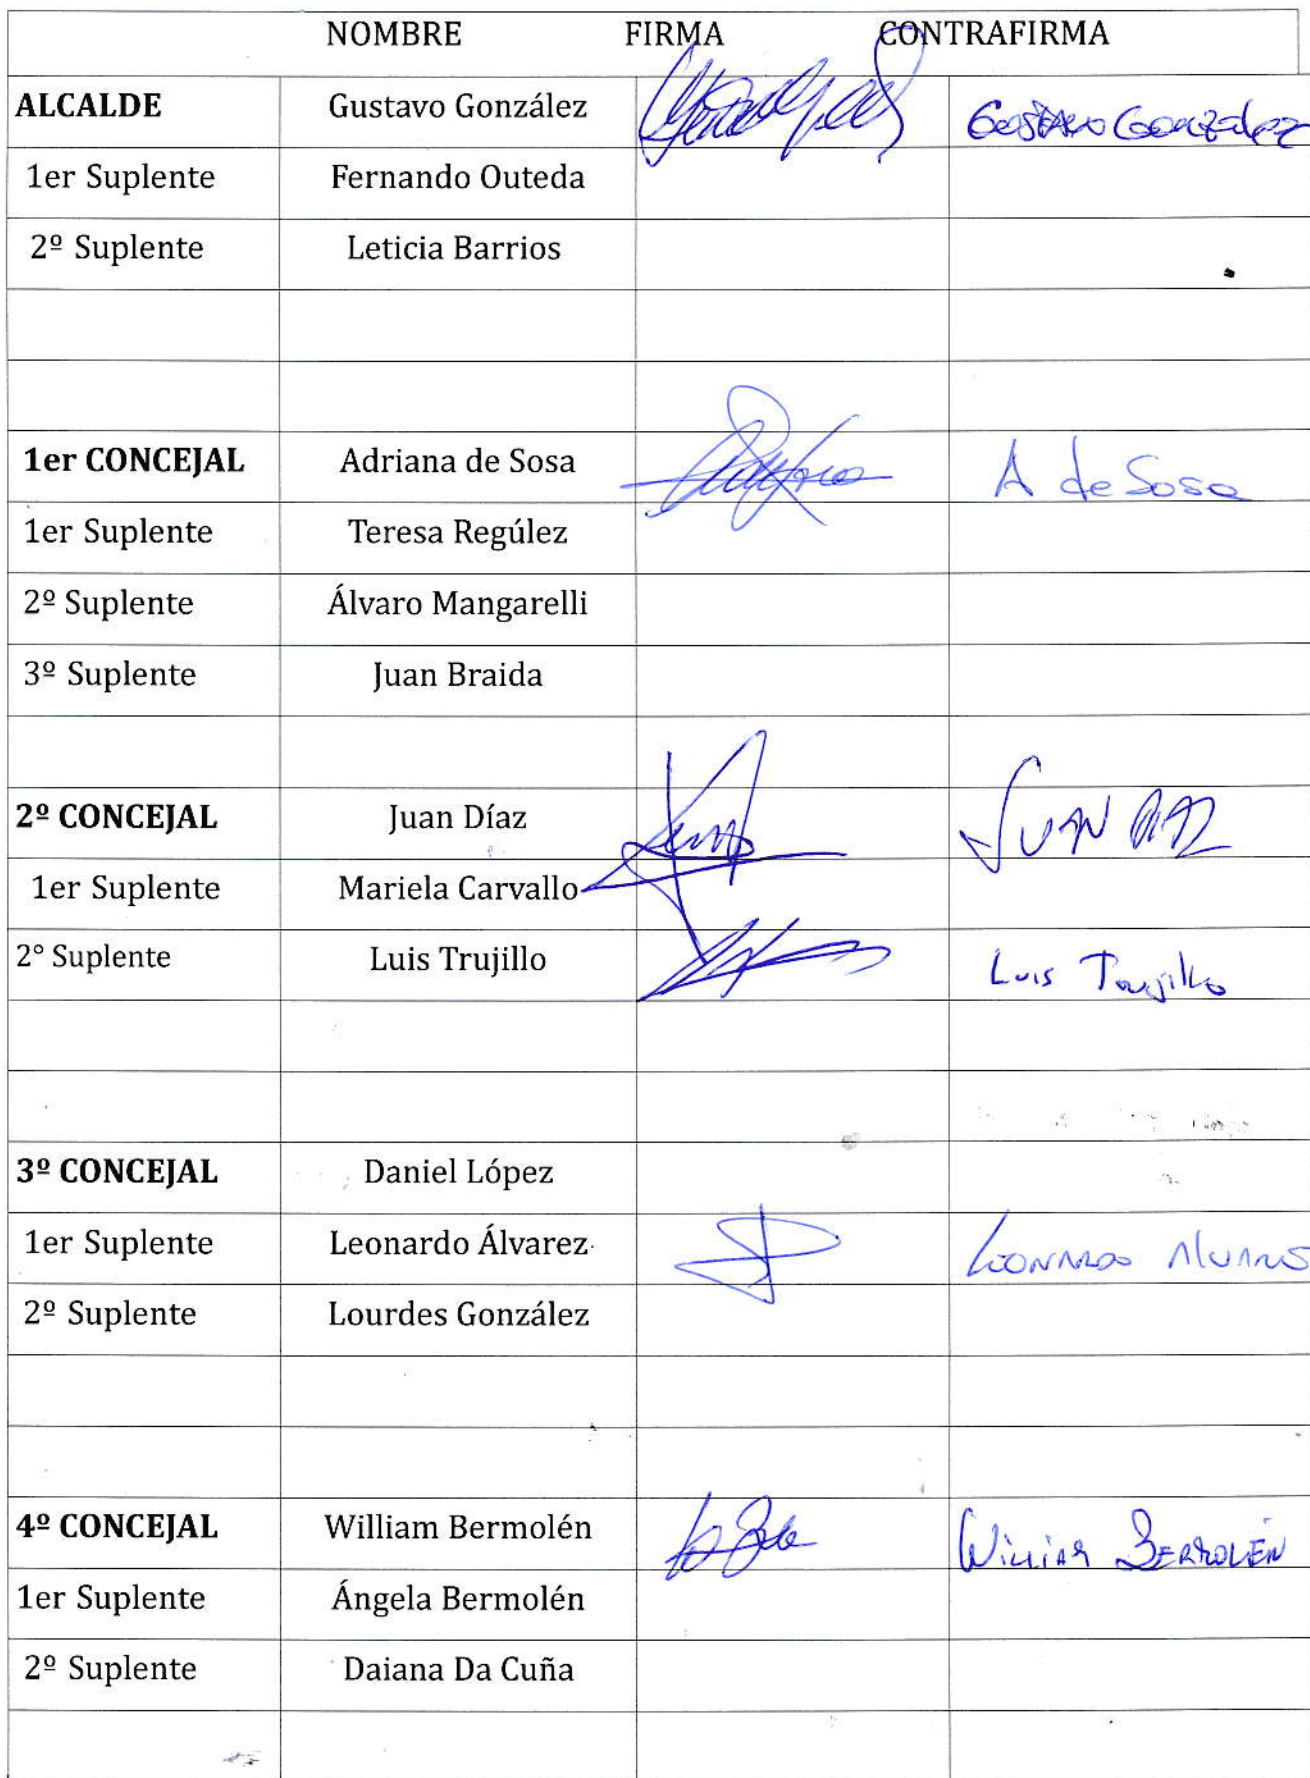 NOMBRE FIRMA CONTRAFIRMA
ALCALDE Gustavo González Gustavo Gonzalez
1er Suplente Fernando Outeda
2º Suplente Leticia Barrios
1er CONCEJAL Adriana de Sosa A de Sosa
1er Suplente Teresa Regúlez
2º Suplente Álvaro Mangarelli
3º Suplente Juan Braida
2º CONCEJAL Juan Díaz JUAN DIAZ
1er Suplente Mariela Carvallo
2° Suplente Luis Trujillo Luis Trujillo
3º CONCEJAL Daniel López
1er Suplente Leonardo Álvarez LEONARDO
2º Suplente Lourdes González
4º CONCEJAL William Bermolén William BERMOLÉN
1er Suplente Ángela Bermolén
2º Suplente Daiana Da Cuña